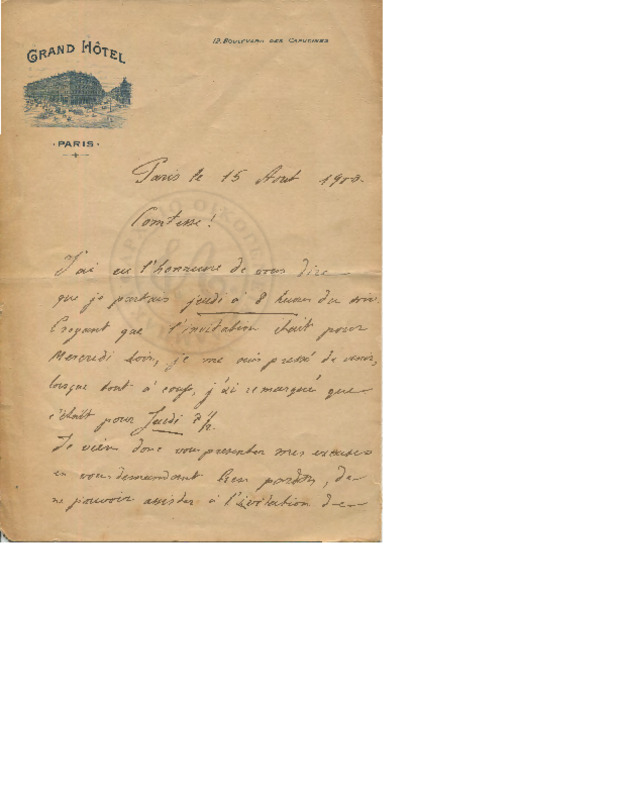 GRAND HÔTEL
12. BOULEVARD DES CAPUCINES
· PARIS ·
Paris le 15 Aout 1900.
Comtesse!
J'ai eu l'honneure de vous dire
que je partais jeudi à 8 heures du soir.
Croyant que l'invitation était pour
Mercredi soir, je me suis pressé de venir,
lorsque tout à coup, j'ai remarqué que
c'était pour Jeudi 7 1/2.
Je vien donc vous presenter mes excuses
en vous demandant bien pardon, de
ne pouvoir assister à l'ivitation de